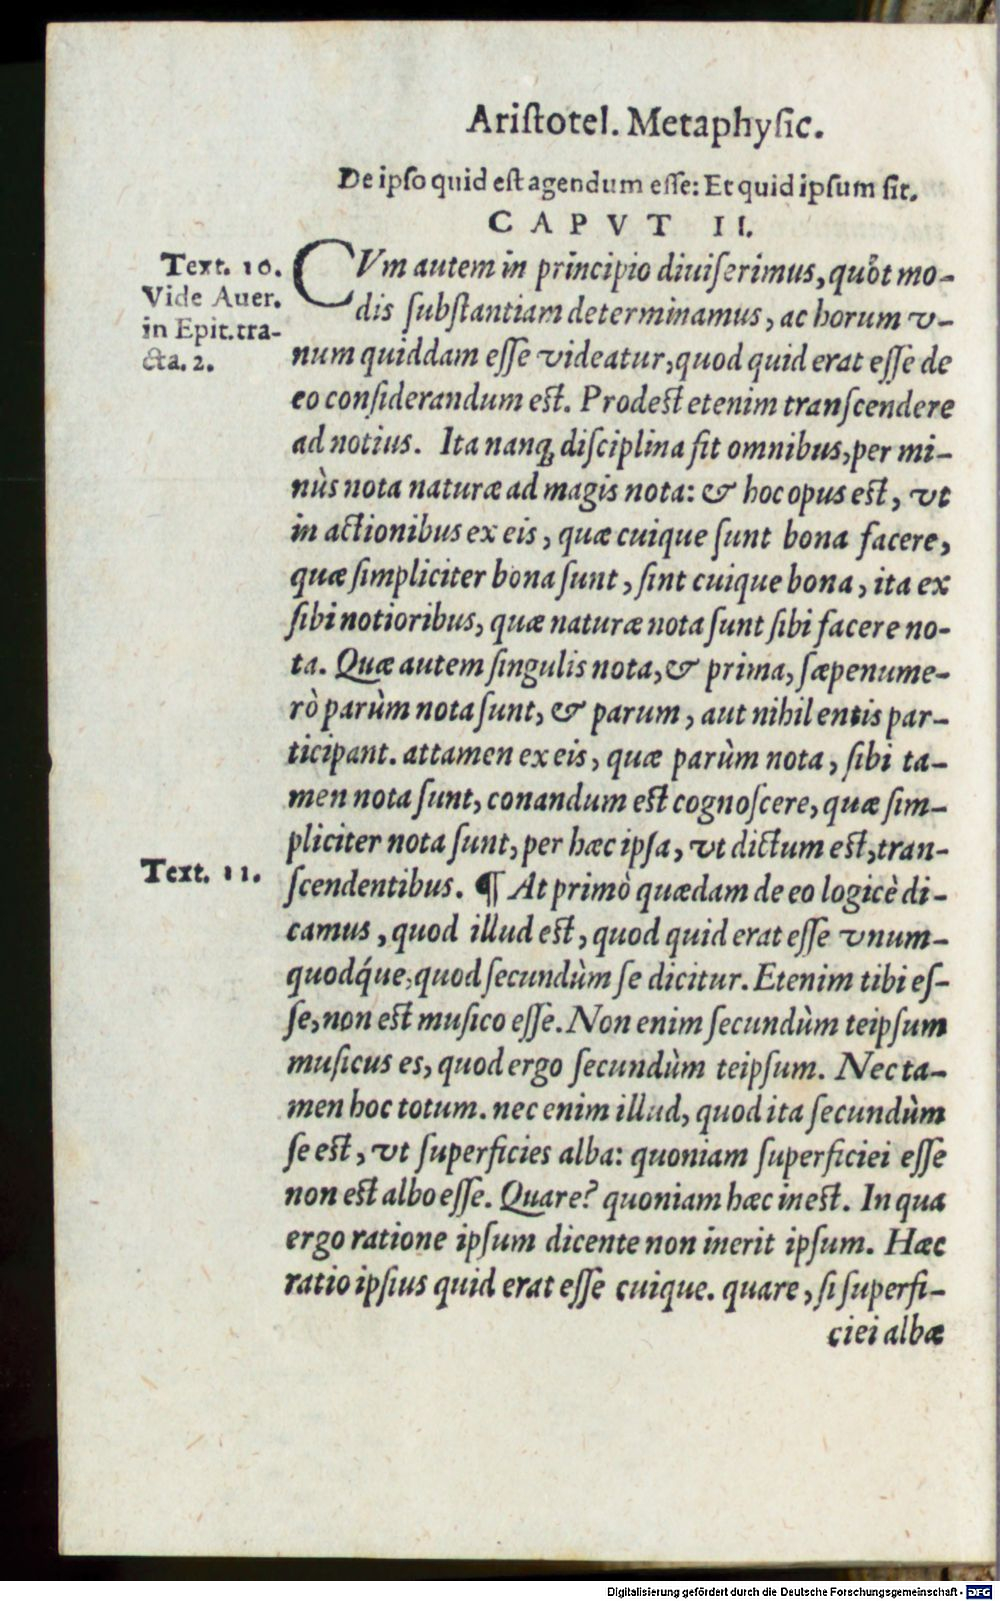 Aristotel. Metaphysic.
De ipso quid est agendum esse: Et quid ipsum sit.
CAPVT II.
Text. 10.
Vide Auer.
in Epit. tra-
cta. 2.
CVm autem in principio diuiserimus, quòt mo-
dis substantiam determinamus, ac horum v-
num quiddam esse videatur, quod quid erat esse de
eo considerandum est. Prodest etenim transcendere
ad notius. Ita nanq; disciplina fit omnibus, per mi-
nùs nota naturæ ad magis nota: & hoc opus est, vt
in actionibus ex eis, quæ cuique sunt bona facere,
quæ simpliciter bona sunt, sint cuique bona, ita ex
sibi notioribus, quæ naturæ nota sunt sibi facere no-
ta. Quæ autem singulis nota, & prima, sæpenume-
rò parùm nota sunt, & parum, aut nihil entis par-
ticipant. attamen ex eis, quæ parùm nota, sibi ta-
men nota sunt, conandum est cognoscere, quæ sim-
pliciter nota sunt, per hæc ipsa, vt dictum est, tran-
Text. 11.
scendentibus. ¶ At primò quædam de eo logicè di-
camus, quod illud est, quod quid erat esse vnum-
quodq́ue, quod secundùm se dicitur. Etenim tibi es-
se, non est musico esse. Non enim secundùm teipsum
musicus es, quod ergo secundùm teipsum. Nec ta-
men hoc totum. nec enim illud, quod ita secundùm
se est, vt superficies alba: quoniam superficiei esse
non est albo esse. Quare? quoniam hæc inest. In qua
ergo ratione ipsum dicente non inerit ipsum. Hæc
ratio ipsius quid erat esse cuique. quare, si superfi-
ciei albæ
Digitalisierung gefördert durch die Deutsche Forschungsgemeinschaft - DFG